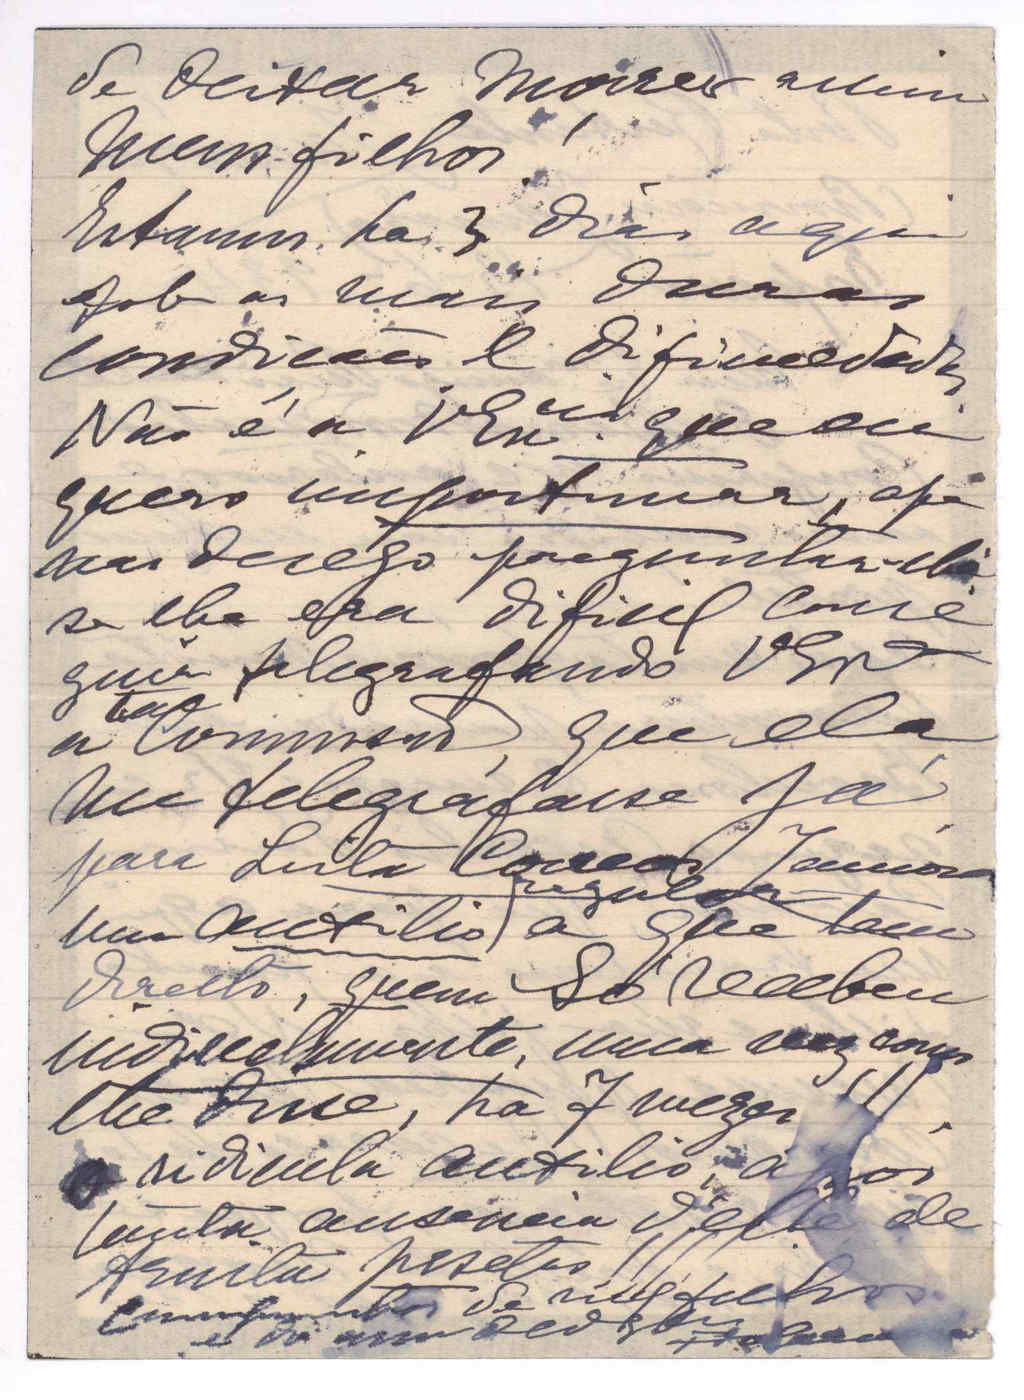 de deixar morrer assim
meus filhos!
Estamos ha 3 dias aqui
sob as mais duras
condicões e dificuldades
Não é a VExcia. que eu
quero importunar, ape
nas desejo preguntar-lhe
se lhe era dificil conse
guir telegrafando VExa
a tal Comissão, que ela
me telegrafasse já
para Lista Correos
um auxilio regular a que tem
direito, quem só recebeu
indirectamente, uma vez como
lhe disse, ha 7 mezes
o ridiculo auxilio, apos
tanta ausencia d'ele de
trinta pesetas!!!
Cumprimentos de meus filhos
e do